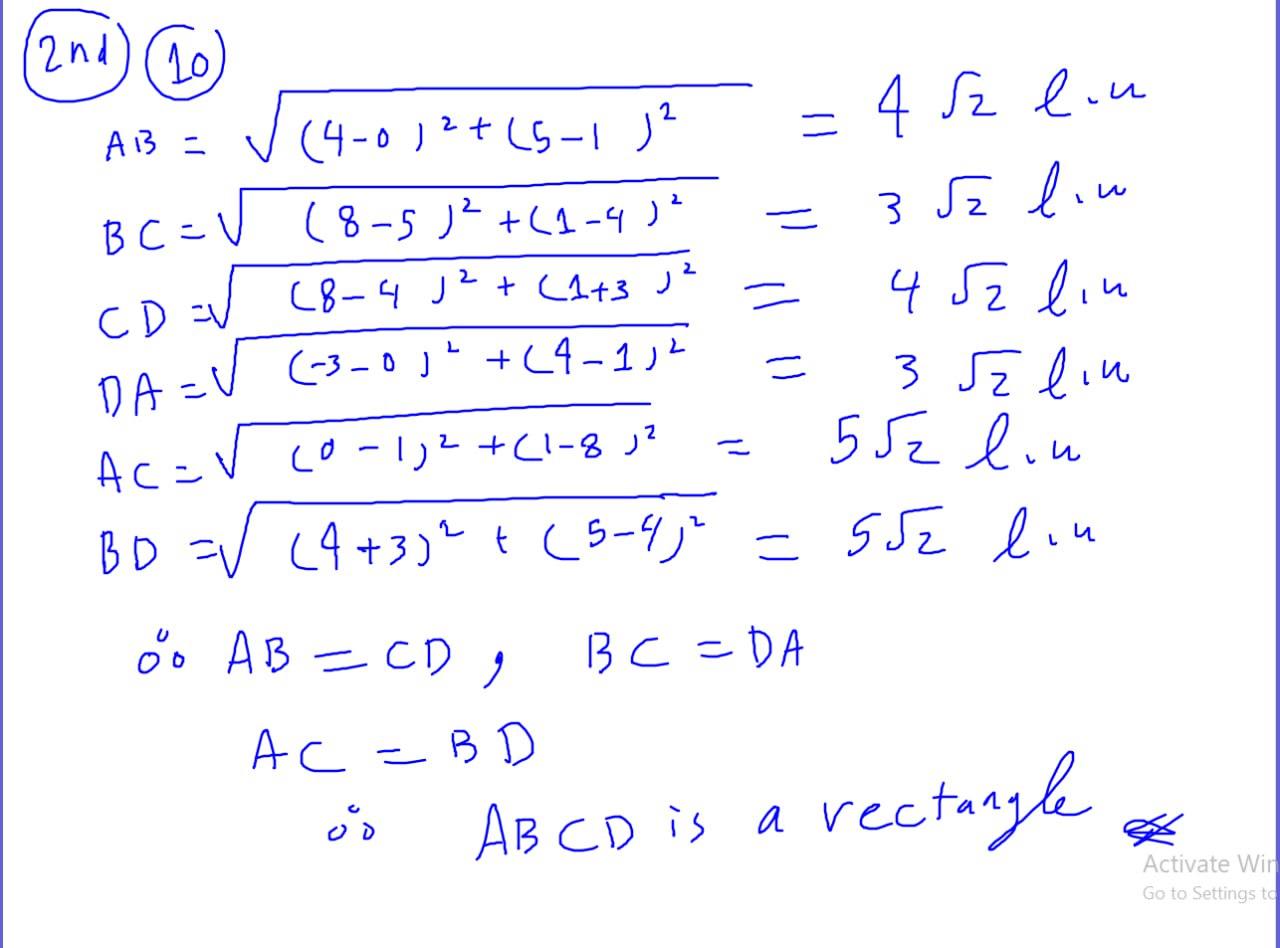 2nd 10
AB = √(4-0)² + (5-1)² = 4√2 l.u
BC = √(8-5)² + (1-4)² = 3√2 l.u
CD = √(8-4)² + (1+3)² = 4√2 l.u
DA = √(-3-0)² + (4-1)² = 3√2 l.u
AC = √(0-1)² + (1-8)² = 5√2 l.u
BD = √(4+3)² + (5-4)² = 5√2 l.u
∴ AB = CD, BC = DA
AC = BD
∴ ABCD is a rectangle
Activate Win
Go to Settings to